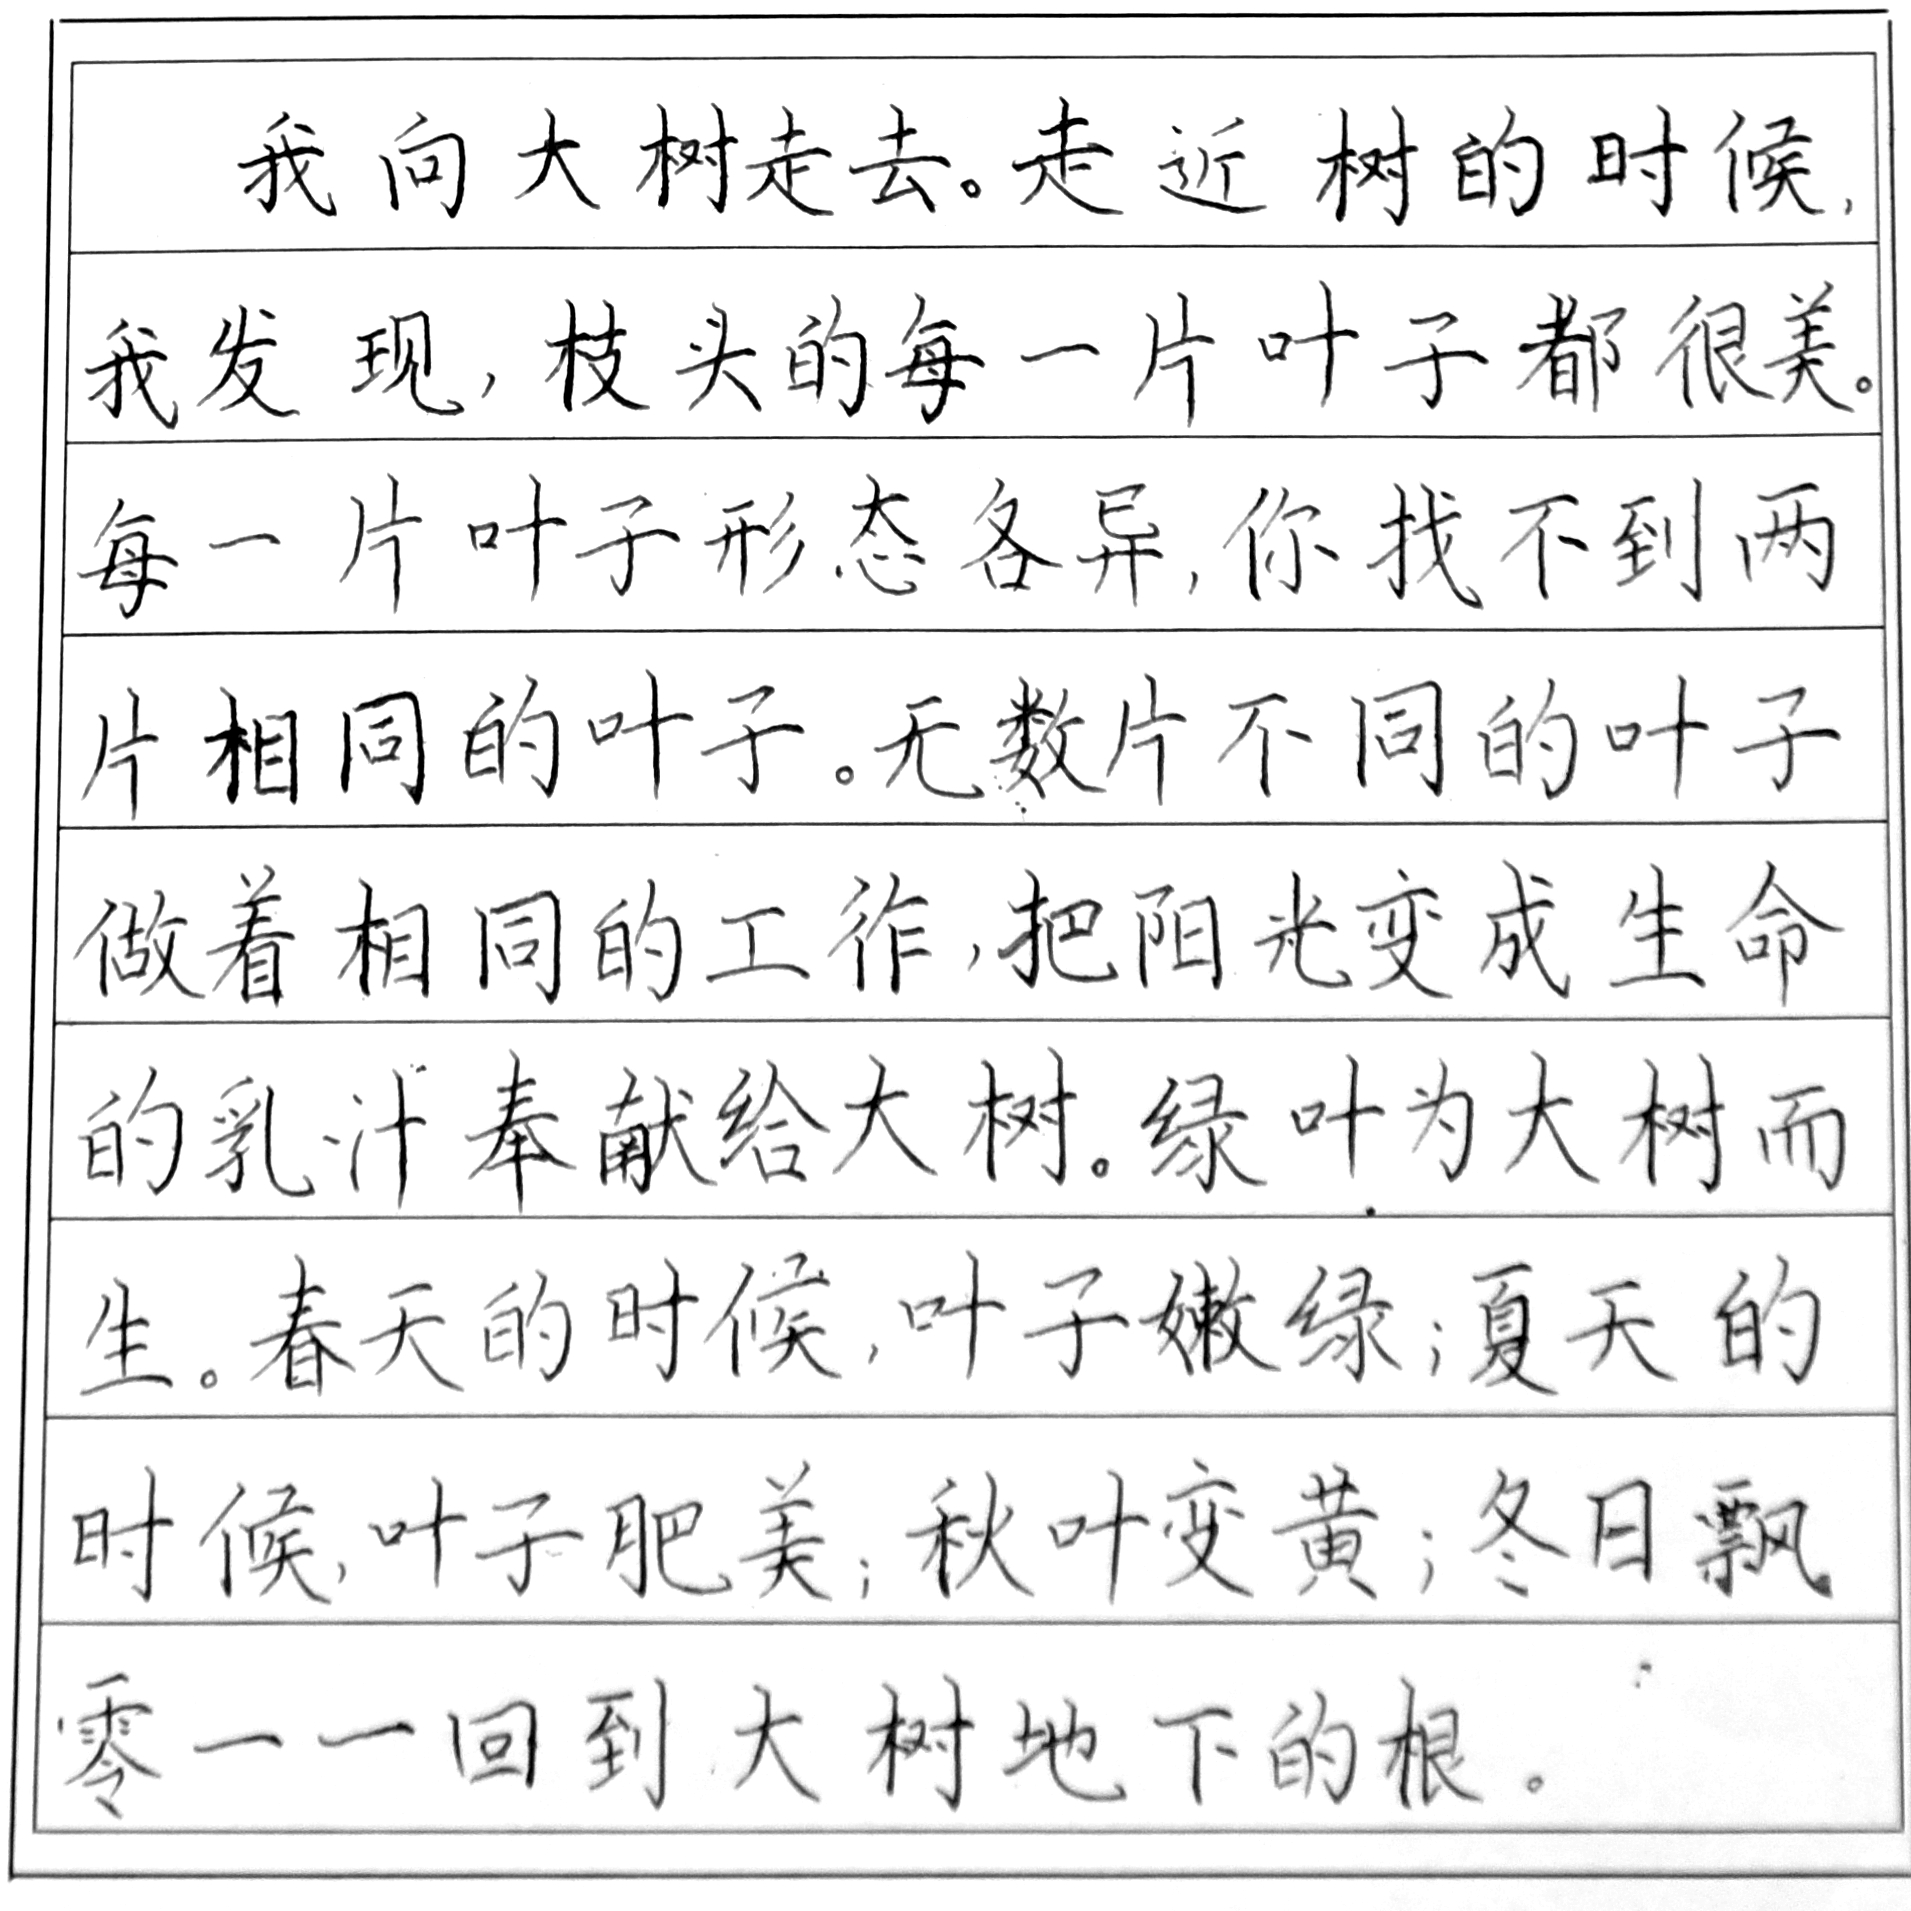 我向大树走去。走近树的时候,
我发现,枝头的每一片叶子都很美。
每一片叶子形态各异,你找不到两
片相同的叶子。无数片不同的叶子
做着相同的工作,把阳光变成生命
的乳汁奉献给大树。绿叶为大树而
生。春天的时候,叶子嫩绿;夏天的
时候,叶子肥美;秋叶变黄;冬日飘
零一一回到大树地下的根。